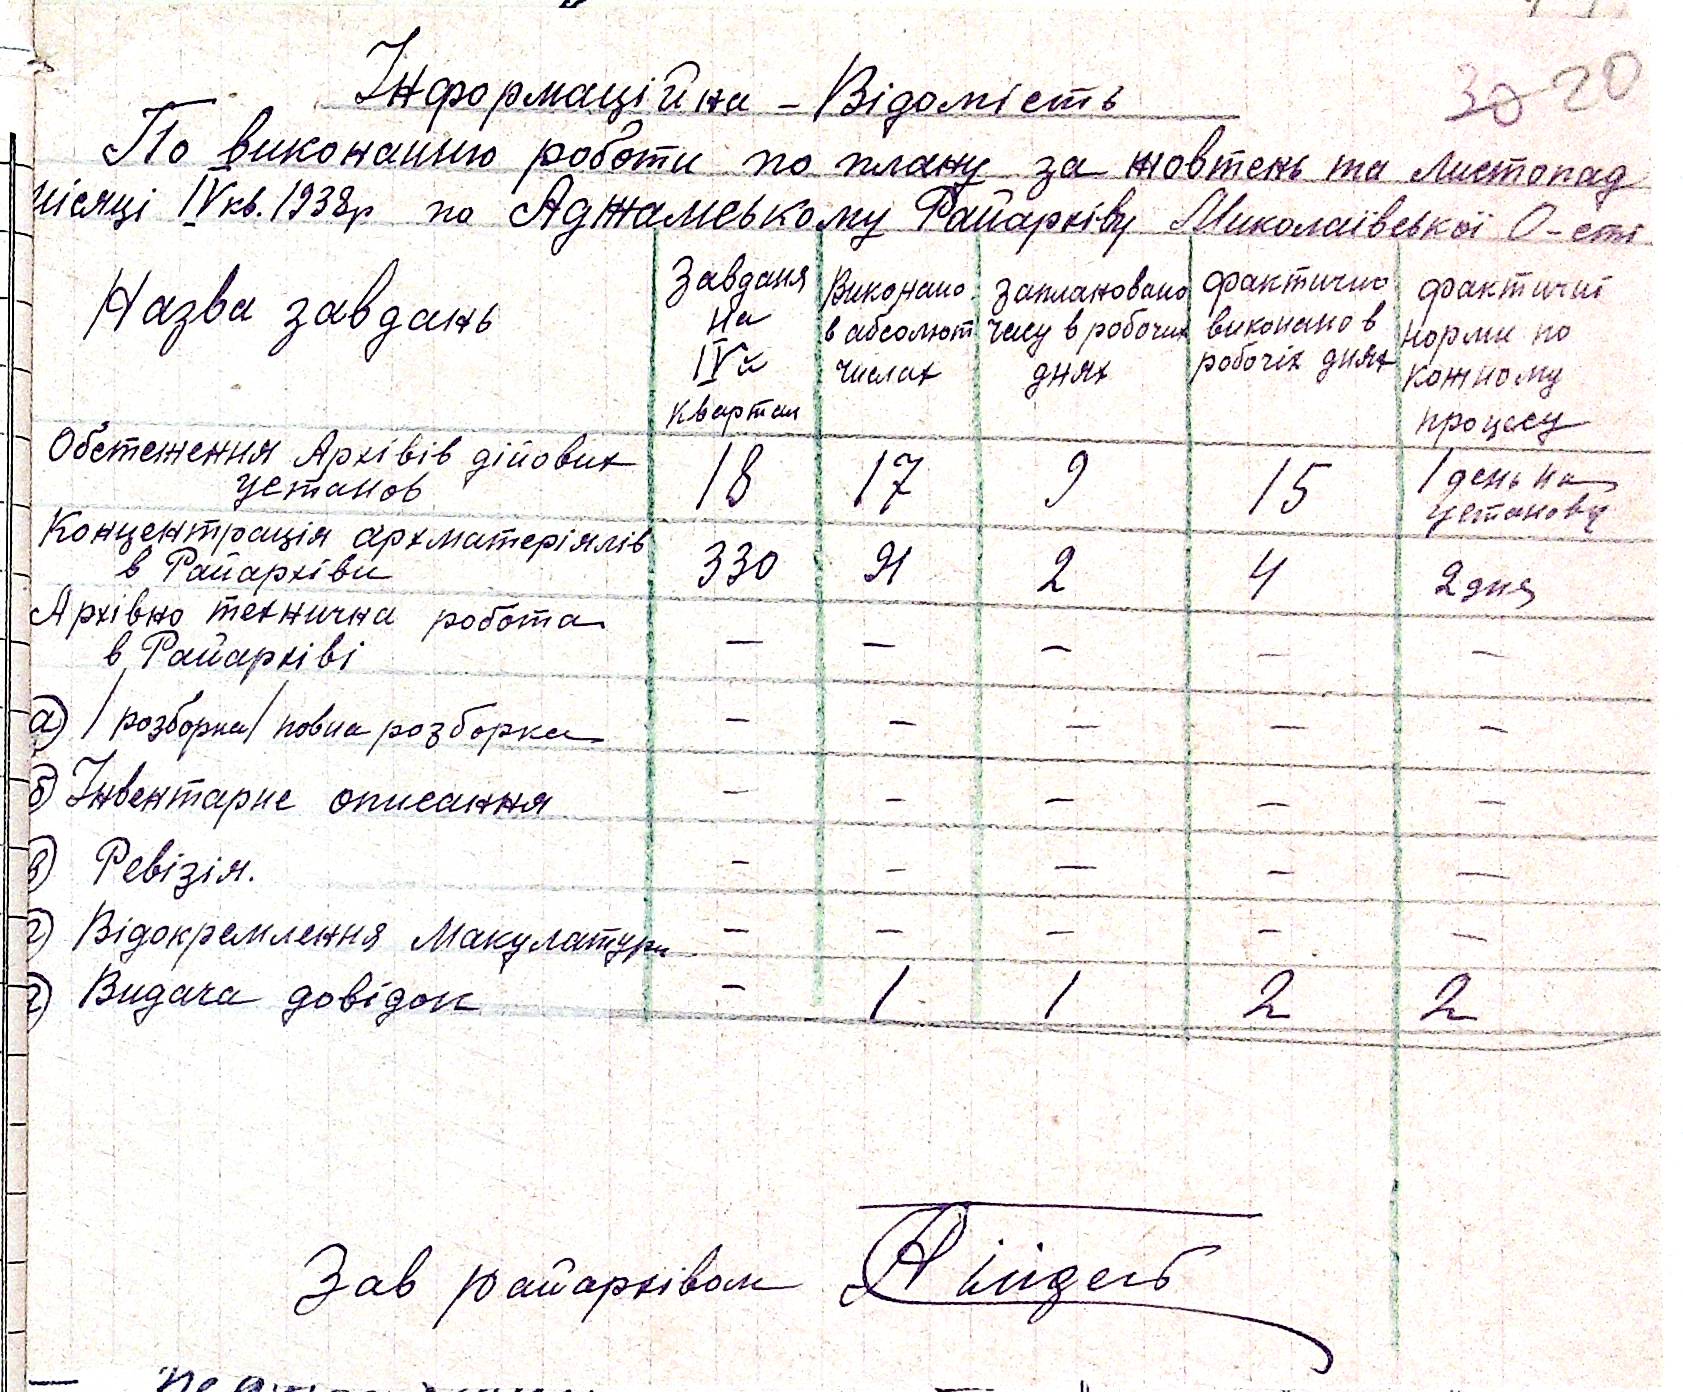 30 20
Інформаційна - Відомість
По виконанню роботи по плану за жовтень та листопад
місяці IV кв. 1938р по Аджамському Райархіву Миколаївської О-сті
Назва завдань
Завданя на IVй квартал
Виконано в абсолют числах
Заплановано часу в робочих днях
фактично виконано в робочіх днях
фактичні норми по кожному процесу
Обстеження Архівів дійових установ 18 17 9 15 1 день на установу
Концентрація архматеріялів в Райархіви 330 21 2 4 2 дня
Архівно технична робота в Райархіві — — — — —
а) /розборка/ повна розборка — — — — —
б) Інвентарне описання — — — — —
в) Ревізія. — — — — —
г) Відокремлення Макулатури — — — — —
д) Видача довідок — 1 1 2 2
Зав райархівом